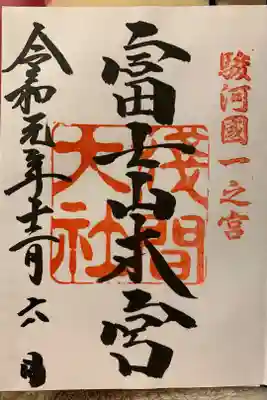 駿河國一之宮
富士山本宮
淺間大社
令和元年十二月六日